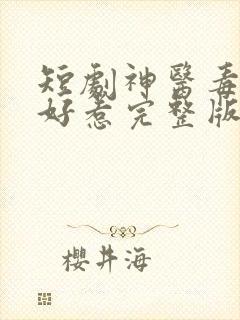 短劇神醫毒
好惹完整版
櫻井海